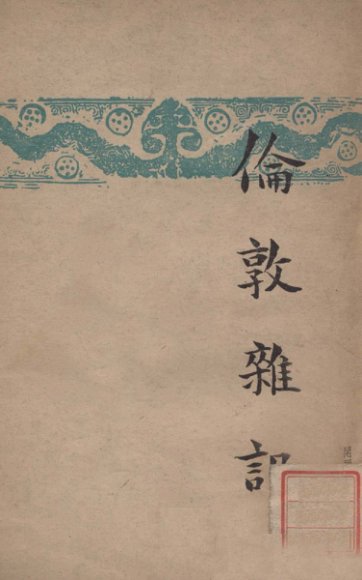 倫敦雜記